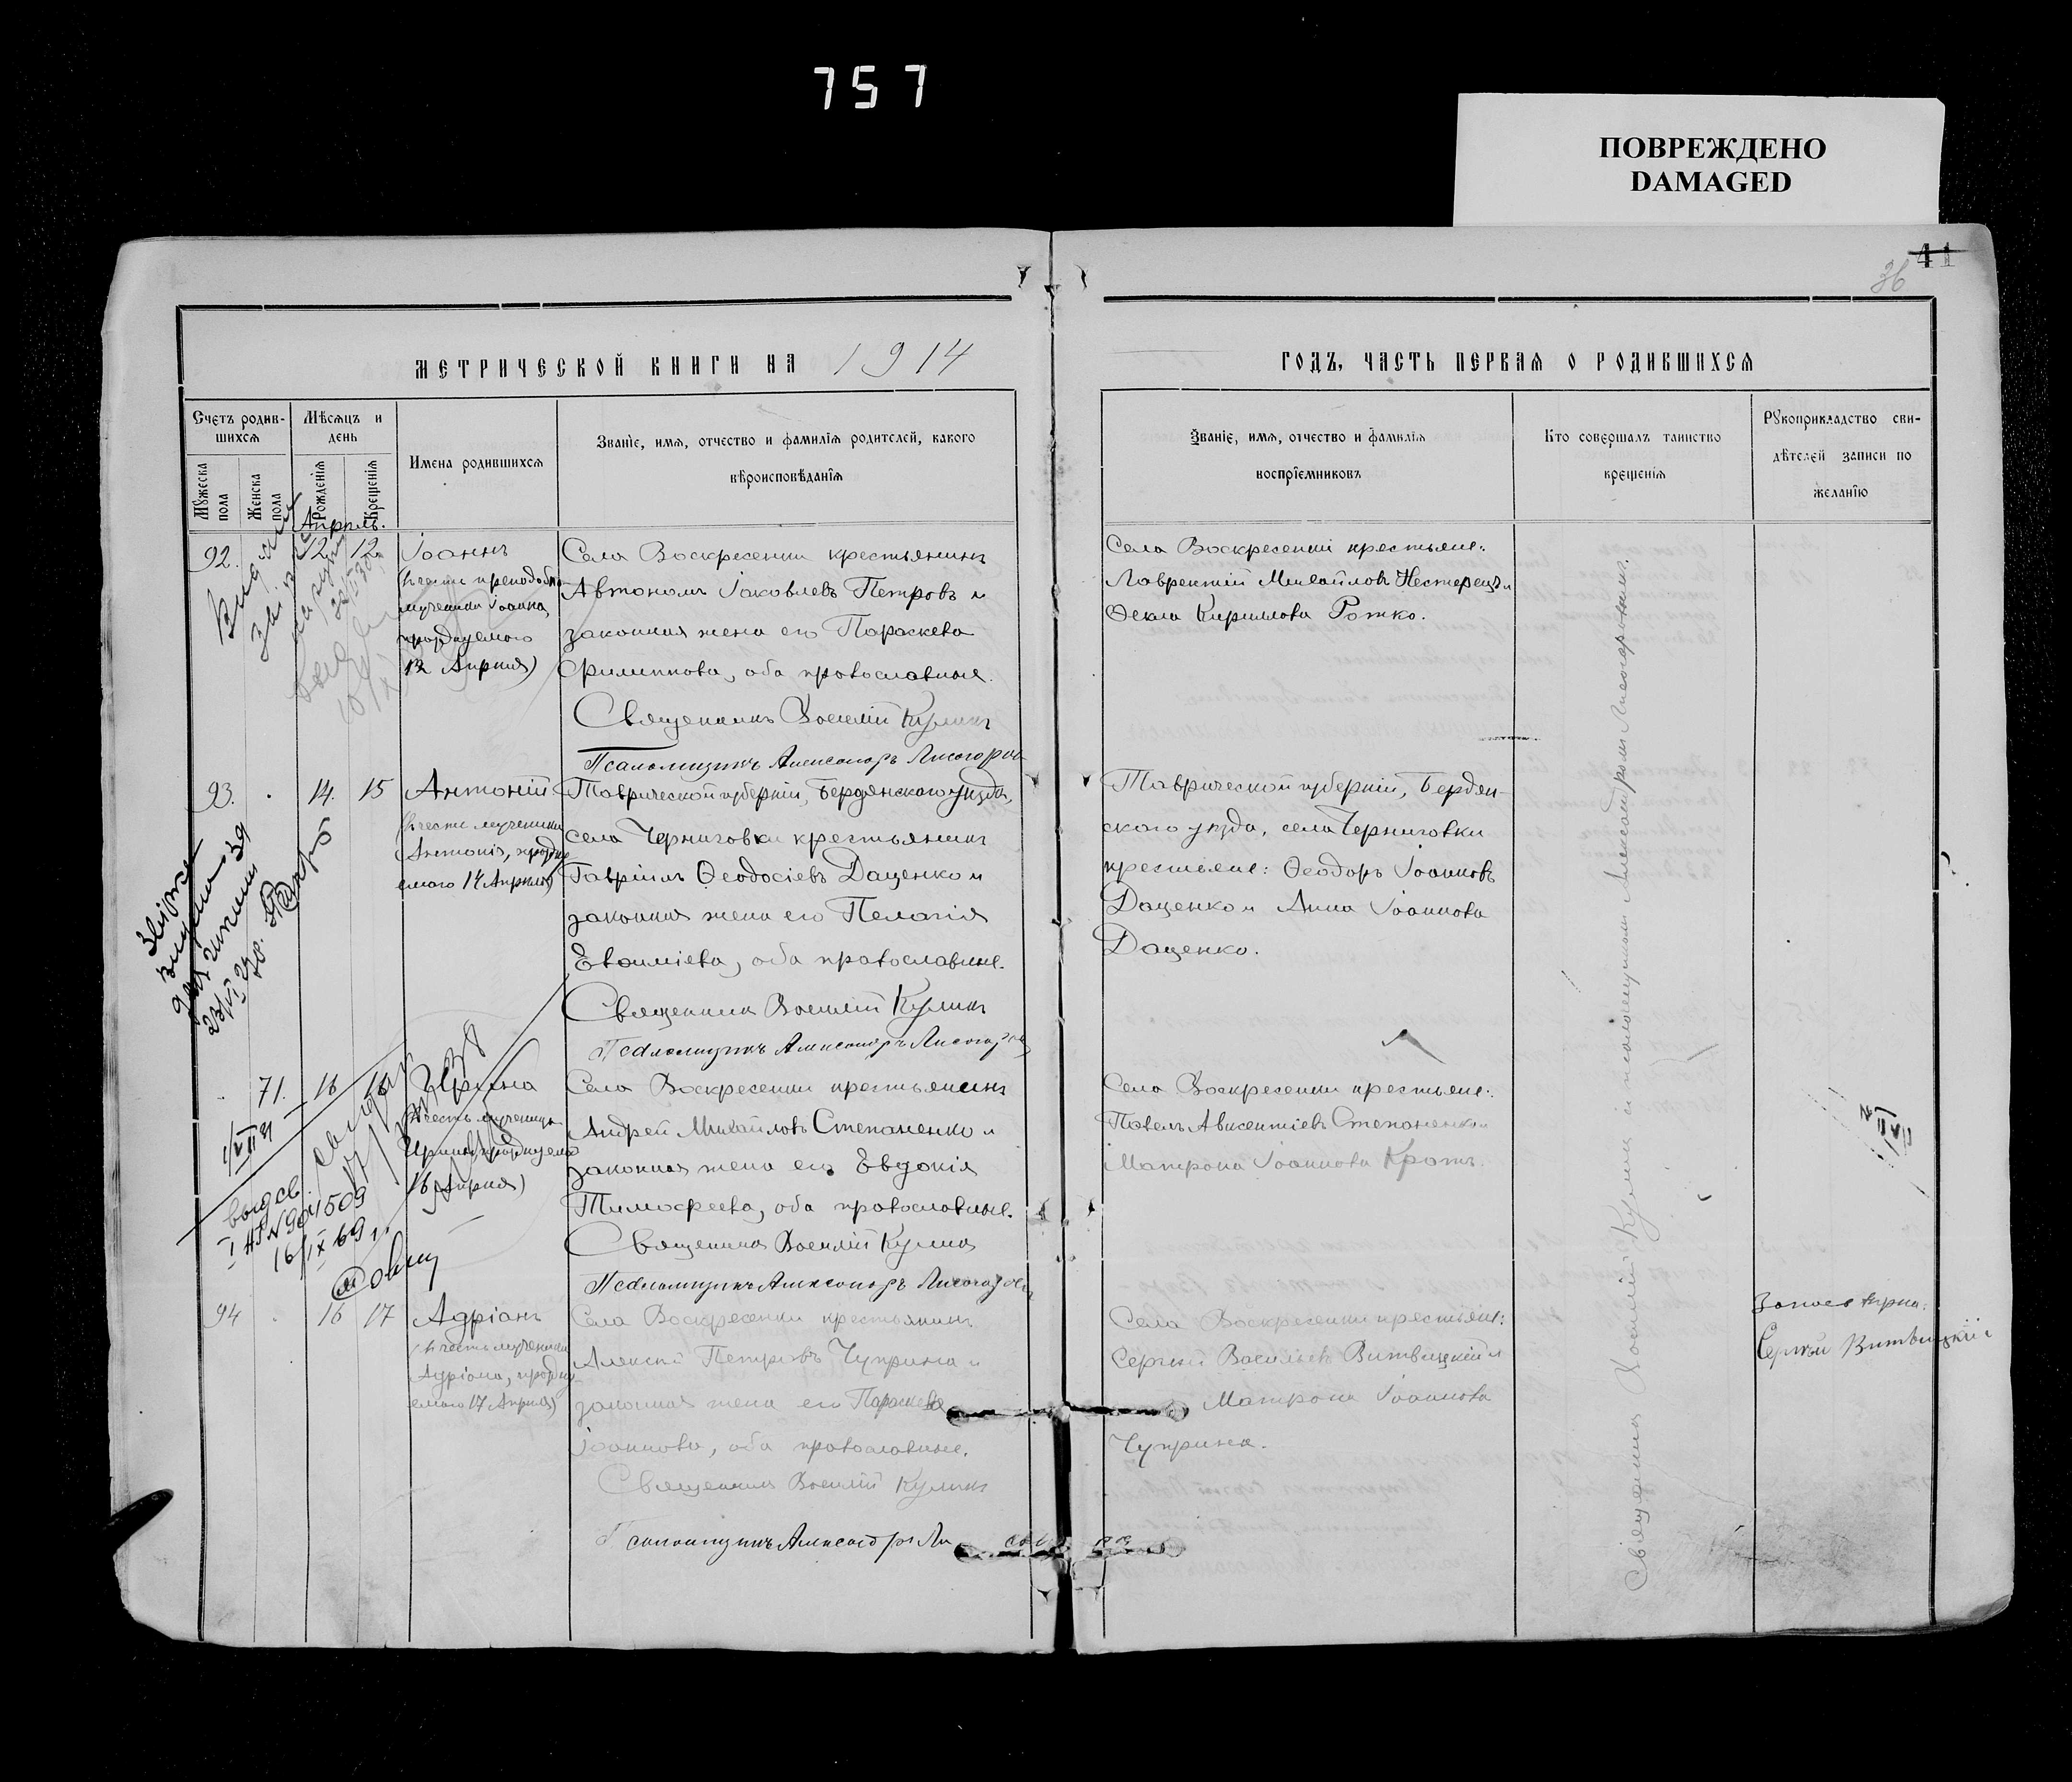 757
ПОВРЕЖДЕНО
DAMAGED
41
36
МЕТРИЧЕСКОЙ КНИГИ НА 1914
ГОДЪ, ЧАСТЬ ПЕРВАЯ О РОДИВШИХСЯ
Счетъ родив-
шихся
Мужеска пола
Женска пола
Мѣсяцъ и
день
Рожденія
Крещенія
Имена родившихся
Званіе, имя, отчество и фамилія родителей, какого
вѣроисповѣданія
Званіе, имя, отчество и фамилія
воспріемниковъ
Кто совершалъ таинство
крещенія
Рукоприкладство сви-
дѣтелей записи по
желанію
Апрѣль.
92. 12 12
Іоаннъ
(в честь преподобно-
мученика Іоанна,
празднуемаго
12 Апрѣля)
Села Воскресенки крестьянинъ
Автономъ Іаковлевъ Петровъ и
законная жена его Параскева
Филиппова, оба православные.
Священникъ Василій Куликъ
Псаломщикъ Александръ Лисогоровъ
Села Воскресенки крестьяне:
Лаврентій Михайловъ Нестерецъ и
Ѳекла Кириллова Рожко.
93. 14. 15
Антоній
(в честь мученика
Антонія, праздну-
емаго 14 Апрѣля)
Таврической губерніи, Бердянскаго уѣзда,
села Черниговки крестьянинъ
Гавріилъ Ѳеодосіевъ Даценко и
законная жена его Пелагія
Евѳиміева, оба православные.
Священникъ Василій Куликъ
Псаломщикъ Александръ Лисогоровъ
Таврической губерніи, Бердян-
скаго уѣзда, села Черниговки
крестьяне: Ѳеодоръ Іоанновъ
Даценко и Анна Іоаннова
Даценко.
71. 16 16
Ирина
(в честь мученицы
Ирины, празднуемой
16 Апрѣля)
Села Воскресенки крестьянинъ
Андрей Михайловъ Степаненко и
законная жена его Евдокія
Тимофеева, оба православные.
Священникъ Василій Куликъ
Псаломщикъ Александръ Лисогоровъ
Села Воскресенки крестьяне:
Павелъ Авксентіевъ Степаненко и
Матрона Іоаннова Кратъ.
16/IX 69 г.
94 16 17
Адріанъ
(в честь мученика
Адріана, праздну-
емаго 17 Апрѣля)
Села Воскресенки крестьянинъ
Алексій Петровъ Чуприна и
законная жена его Параскева
Іоаннова, оба православные.
Священникъ Василій Куликъ
Псаломщикъ Александръ Лисогоровъ
Села Воскресенки крестьяне:
Сергій Васильевъ Витвицкій и
Матрона Іоаннова
Чуприна.
Сергѣй Витвицкій
Священникъ Василій Куликъ и псаломщикъ Александръ Лисогоровъ.